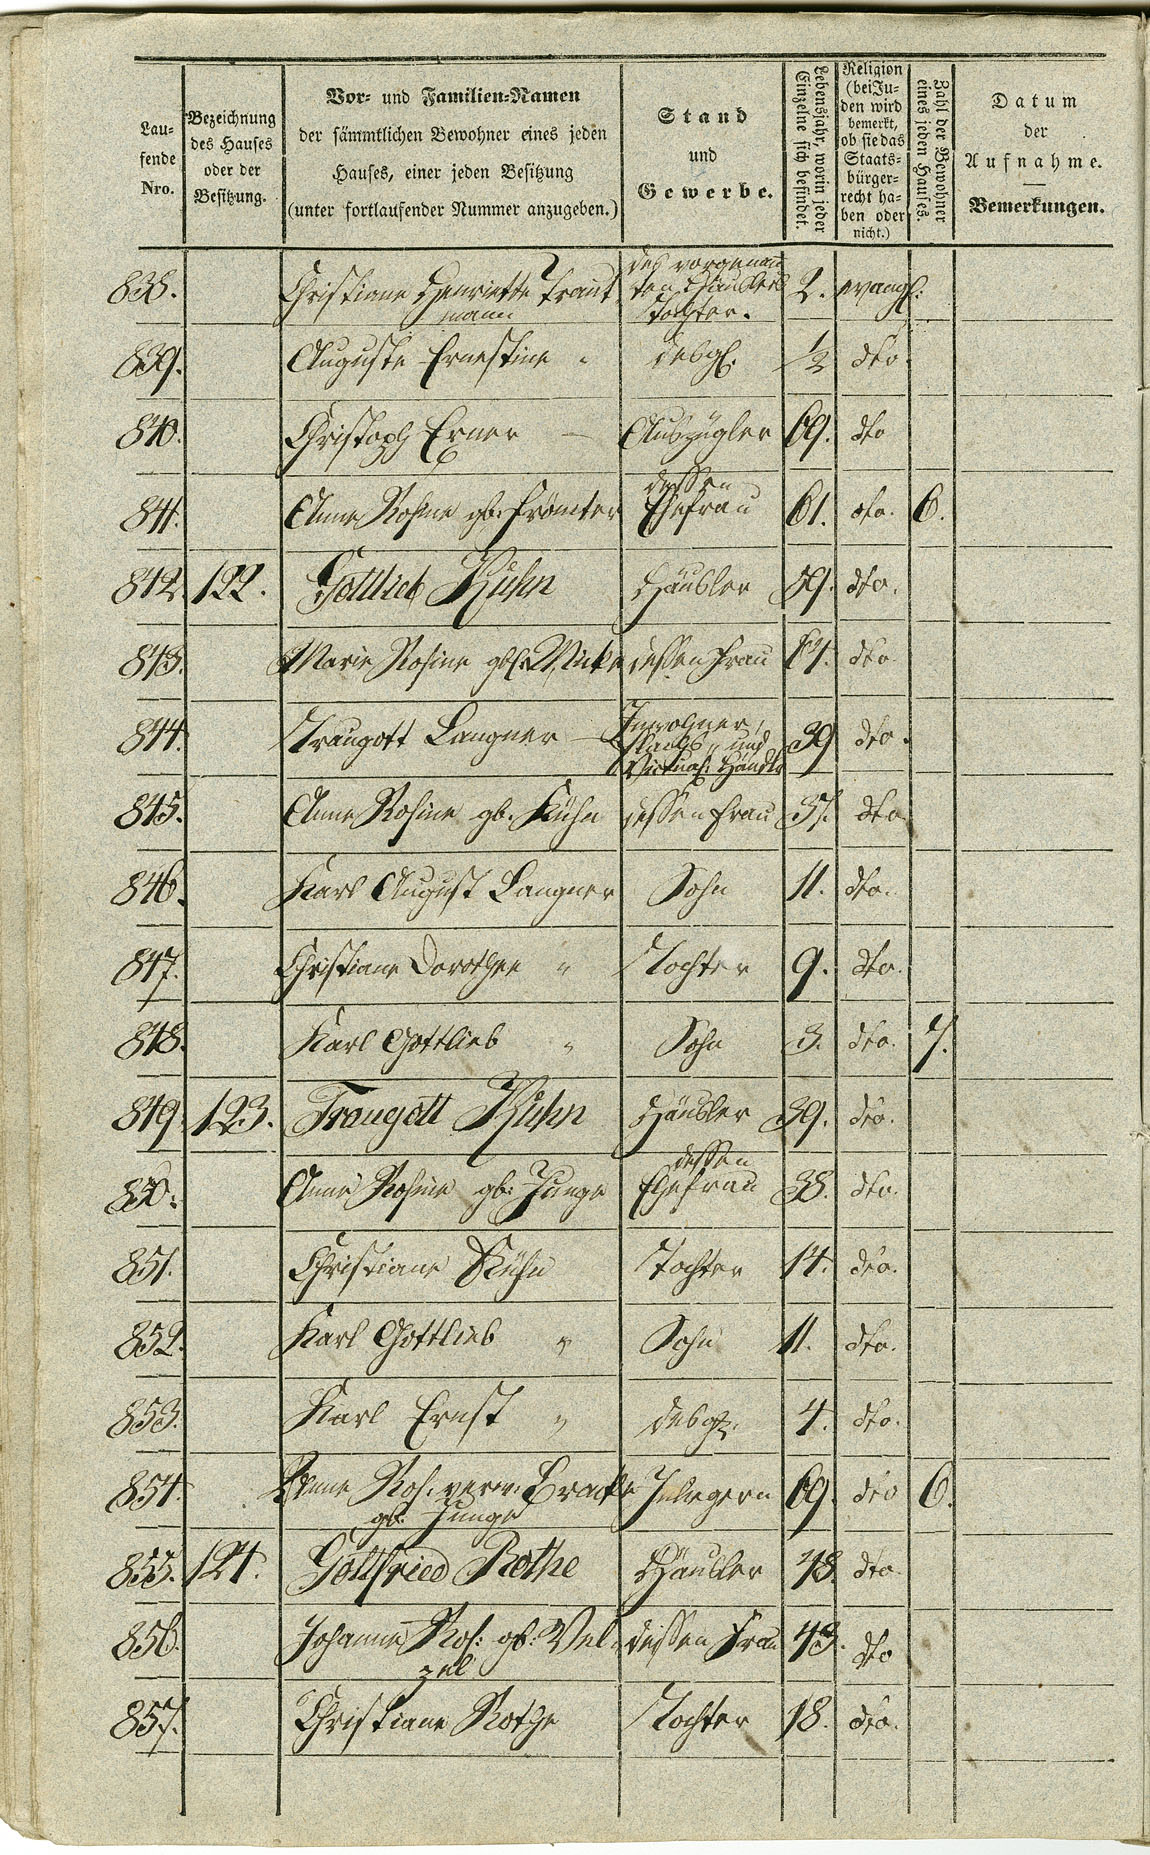 Lau-
fende
Nro.
Bezeichnung
des Hauses
oder der
Besitzung.
Vor- und Familien-Namen
der sämmtlichen Bewohner eines jeden
Hauses, einer jeden Besitzung
(unter fortlaufender Nummer anzugeben.)
Stand
und
Gewerbe.
Lebensjahr, worin jeder
Einzelne sich befindet.
Religion
(bei Ju-
den wird
bemerkt,
ob sie das
Staats-
bürger-
recht ha-
ben oder
nicht.)
Zahl der Bewohner
eines jeden Hauses.
Datum
der
Aufnahme.
Bemerkungen.
des vorgenan
838. Christiane Henriette Traut ten Häuslers 2. evangl:
mann Tochter.
839. Auguste Ernestine " desgl. 1/2 dto.
840. Christoph Exner — Auszügler 69. dto
dessen
841. Anne Rosine gb. Frömter Ehefrau 61. dto. 6.
842. 122. Gottlieb Kühn Häusler 59. dto.
843. Marie Rosine gb. Micke dessen Frau 64. dto.
Inwohner,
844. Traugott Langner — und 39 dto.
Victual: Händler
845. Anne Rosine gb. Kühn dessen Frau 37. dto.
846. Karl August Langner Sohn 11. dto.
847. Christiane Dorothee " Tochter 9. dto.
848. Karl Gottlieb " Sohn 3. dto. 7.
849. 123. Traugott Kühn Häusler 39. dto.
dessen
850. Anne Rosine gb: Junge Ehefrau 38. dto.
851. Christiane Kühn Tochter 14. dto.
852. Karl Gottlieb " Sohn 11. dto.
853. Karl Ernst " desgl. 4. dto.
854. Anne Ros. verw. 69. dto 6.
gb. Junge
855. 124. Gottfried Rothe Häusler 48. dto.
856. Johanne Ros: gb: Wel- dessen Frau 43. dto
zel
857. Christiane Rothe Tochter 18. dto.